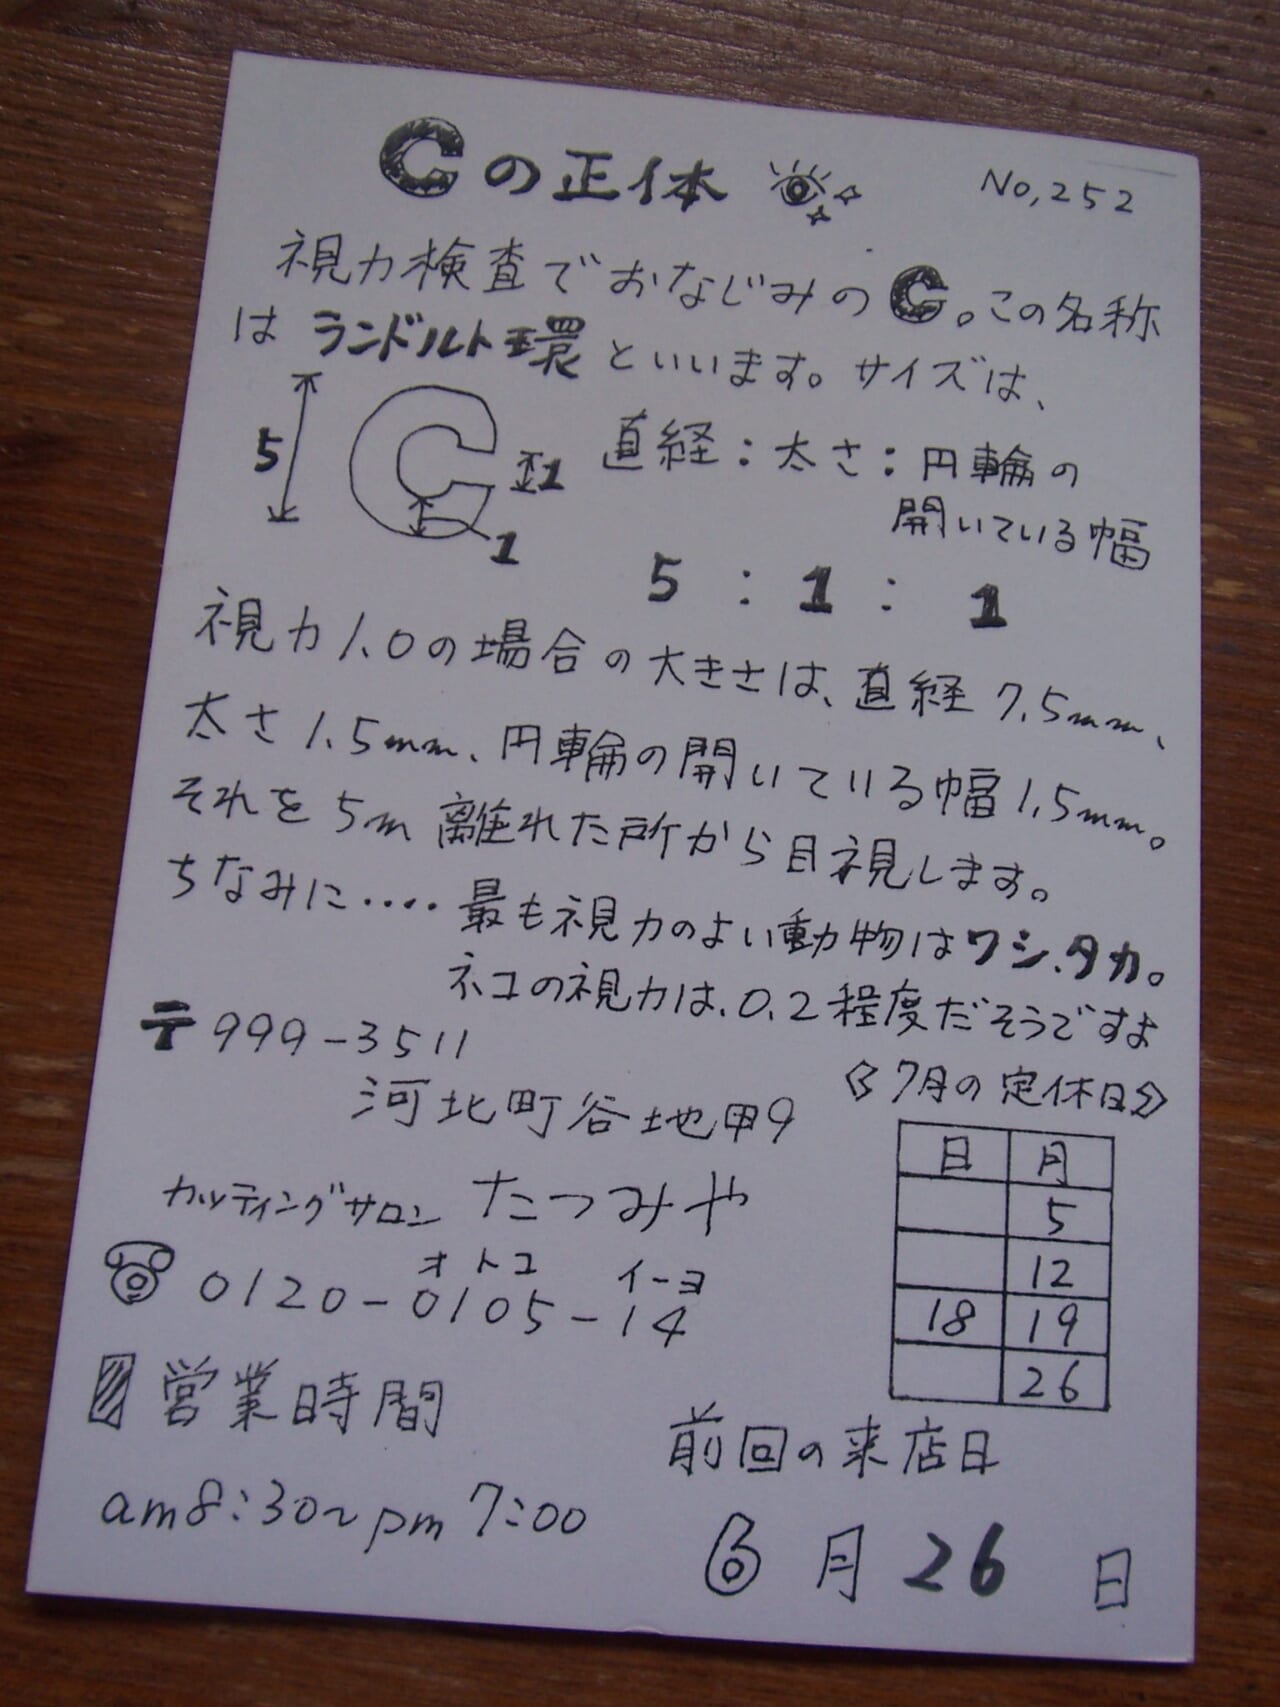 Cの正体
No,252
視力検査でおなじみのC。この名称
はランドルト環といいます。サイズは、
5
1
1
直経:太さ:円輪の
開いている幅
5:1:1
視力1.0の場合の大きさは、直経7.5mm、
太さ1.5mm、円輪の開いている幅1.5mm。
それを5m離れた所から目視します。
ちなみに‥‥最も視力のよい動物はワシ、タカ。
ネコの視力は、0.2程度だそうですよ
〒999-3511
河北町谷地甲9
カッティングサロン たつみや
オトコ イーヨ
☎0120-0105-14
営業時間
am8:30~pm7:00
〈7月の定休日〉
日 月
5
12
18 19
26
前回の来店日
6月26日